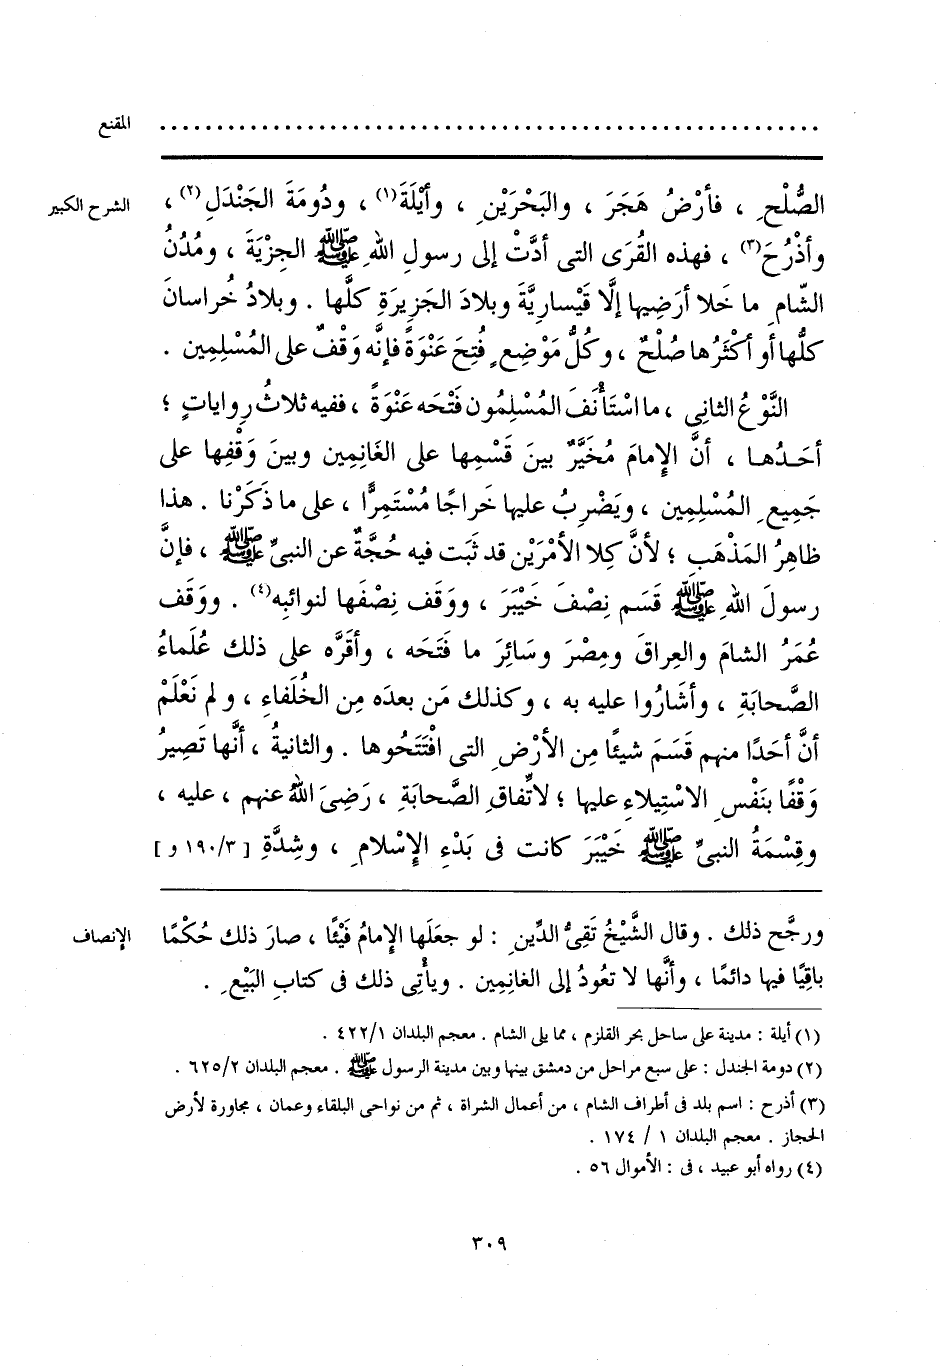 المقنع ............................................................
الشرح الكبير
الصُّلْحِ ، فأَرْضُ هَجَرَ ، والبَحْرَيْنِ ، وأَيْلَةَ(١) ، ودُومَةَ الجَنْدَلِ(٢) ،
وأَذْرُحَ(٣) ، فهذه القُرَى التى أدَّتْ إلى رسولِ اللهِ ﷺ الجِزْيَةَ ، ومُدُنُ
الشّامِ ما خَلا أرَضِيها إلَّا قَيْسارِيَّةَ وبلادَ الجَزِيرَةِ كلَّها . وبلادُ خُراسانَ
كلُّها أو أكْثَرُها صُلْحٌ ، وكُلُّ مَوْضِعٍ فُتِحَ عَنْوَةً فإنَّه وَقْفٌ على المُسْلِمِين .
النَّوْعُ الثانِى ، ما اسْتَأْنَفَ المُسْلِمُون فَتْحَه عَنْوَةً ، ففيه ثلاثُ رِواياتٍ ؛
أحَدُها ، أنَّ الإِمامَ مُخَيَّرٌ بينَ قَسْمِها على الغَانِمِين وبينَ وَقْفِها على
جَمِيعِ المُسْلِمِين ، ويَضْرِبُ عليها خَراجًا مُسْتَمِرًّا ، على ما ذَكَرْنا . هذا
ظاهِرُ المَذْهَبِ ؛ لأنَّ كِلا الأمْرَيْن قد ثَبَت فيه حُجَّةٌ عن النبىِّ ﷺ ، فإنَّ
رسولَ اللهِ ﷺ قَسَم نِصْفَ خَيْبَرَ ، ووَقَف نِصْفَها لنوائبِه(٤) . ووَقَف
عُمَرُ الشامَ والعِراقَ ومِصْرَ وسَائِرَ ما فَتَحَه ، وأقَرَّه على ذلك عُلَماءُ
الصَّحابَةِ ، وأشَارُوا عليه به ، وكذلك مَن بعدَه مِن الخُلَفاءِ ، ولم نَعْلَمْ
أنَّ أحَدًا منهم قَسَمَ شيئًا مِن الأرْضِ التى افْتَتَحُوها . والثانيةُ ، أنَّها تَصِيرُ
وَقْفًا بنَفْسِ الاسْتِيلاءِ عليها ؛ لاتِّفاقِ الصَّحابَةِ ، رَضِىَ اللهُ عنهم ، عليه ،
وقِسْمَةُ النبىِّ ﷺ خَيْبَرَ كانت فى بَدْءِ الإِسْلامِ ، وشِدَّةِ [ ١٩٠/٣ و ]
الإنصاف
ورجَّح ذلك . وقال الشَّيْخُ تَقِىُّ الدِّينِ : لو جعَلَها الإِمامُ فَيْئًا ، صارَ ذلك حُكْمًا
باقِيًا فيها دائمًا ، وأنَّها لا تعُودُ إلى الغانِمِين . ويأْتِى ذلك فى كتابِ البَيْعِ .
(١) أيلة : مدينة على ساحل بحر القلزم ، مما يلى الشام . معجم البلدان ٤٢٢/١ .
(٢) دومة الجندل : على سبع مراحل من دمشق بينها وبين مدينة الرسول ﷺ . معجم البلدان ٦٢٥/٢ .
(٣) أذرح : اسم بلد فى أطراف الشام ، من أعمال الشراة ، ثم من نواحى البلقاء وعمان ، مجاورة لأرض
الحجاز . معجم البلدان ١ / ١٧٤ .
(٤) رواه أبو عبيد ، فى : الأموال ٥٦ .
٣٠٩